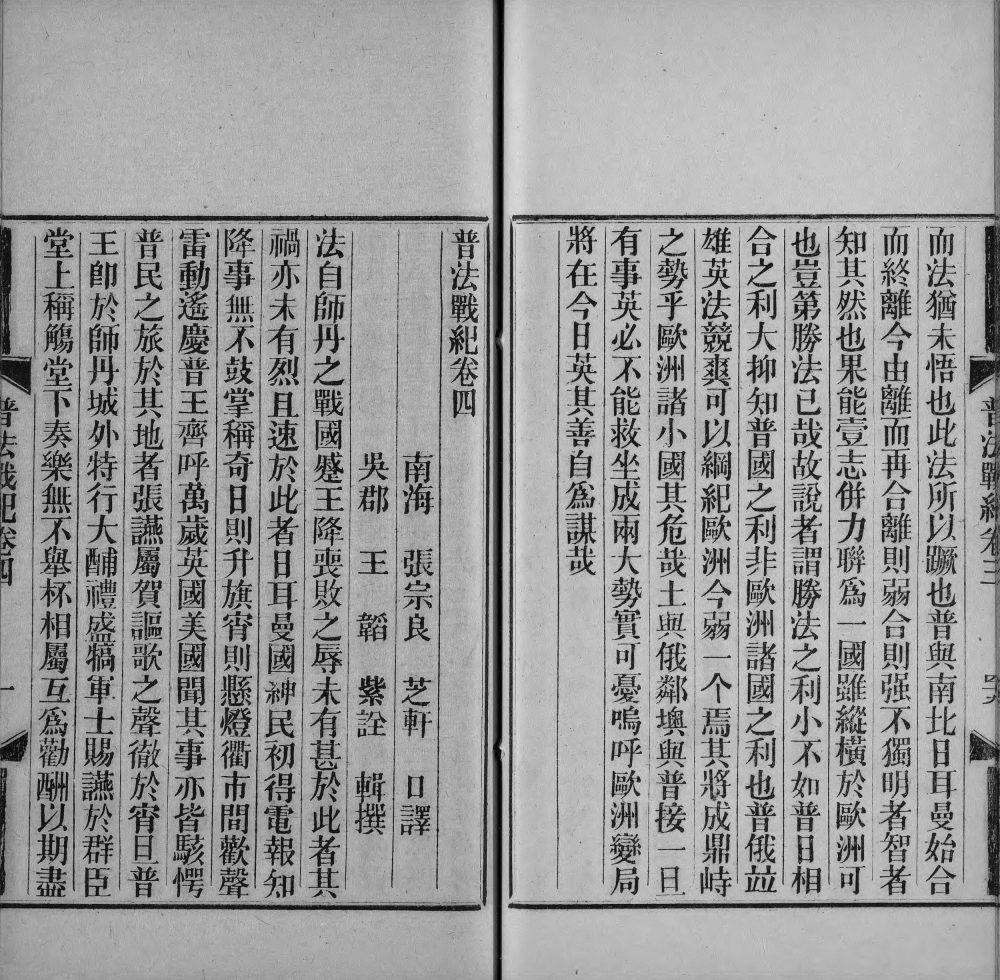 而法猶未悟也此法所以蹶也普與南北日耳曼始合
而終離今由離而再合離則弱合則强不獨明者智者
知其然也果能壹志併力聯爲一國雖縱橫於歐洲可
也豈第勝法已哉故說者謂勝法之利小不如普日相
合之利大抑知普國之利非歐洲諸國之利也普俄竝
雄英法競爽可以綱紀歐洲今弱一个焉其將成鼎峙
之勢乎歐洲諸小國其危哉土與俄鄰壤與普接一旦
有事英必不能救坐成兩大勢實可憂嗚呼歐洲變局
將在今日英其善自爲謀哉
普法戰紀卷三
普法戰紀卷四
南海 張宗良 芝軒 口譯
吳郡 王韜 紫詮 輯撰
法自師丹之戰國蹙王降喪敗之辱未有甚於此者其
禍亦未有烈且速於此者日耳曼國紳民初得電報知
降事無不鼓掌稱奇日則升旗宵則懸燈衢市間歡聲
雷動遙慶普王齊呼萬歲英國美國聞其事亦皆駭愕
普民之旅於其地者張讌屬賀謳歌之聲徹於宵旦普
王卽於師丹城外特行大酺禮盛犒軍士賜讌於群臣
堂上稱觴堂下奏樂無不舉杯相屬互爲勸酬以期盡
普法戰紀卷四
一